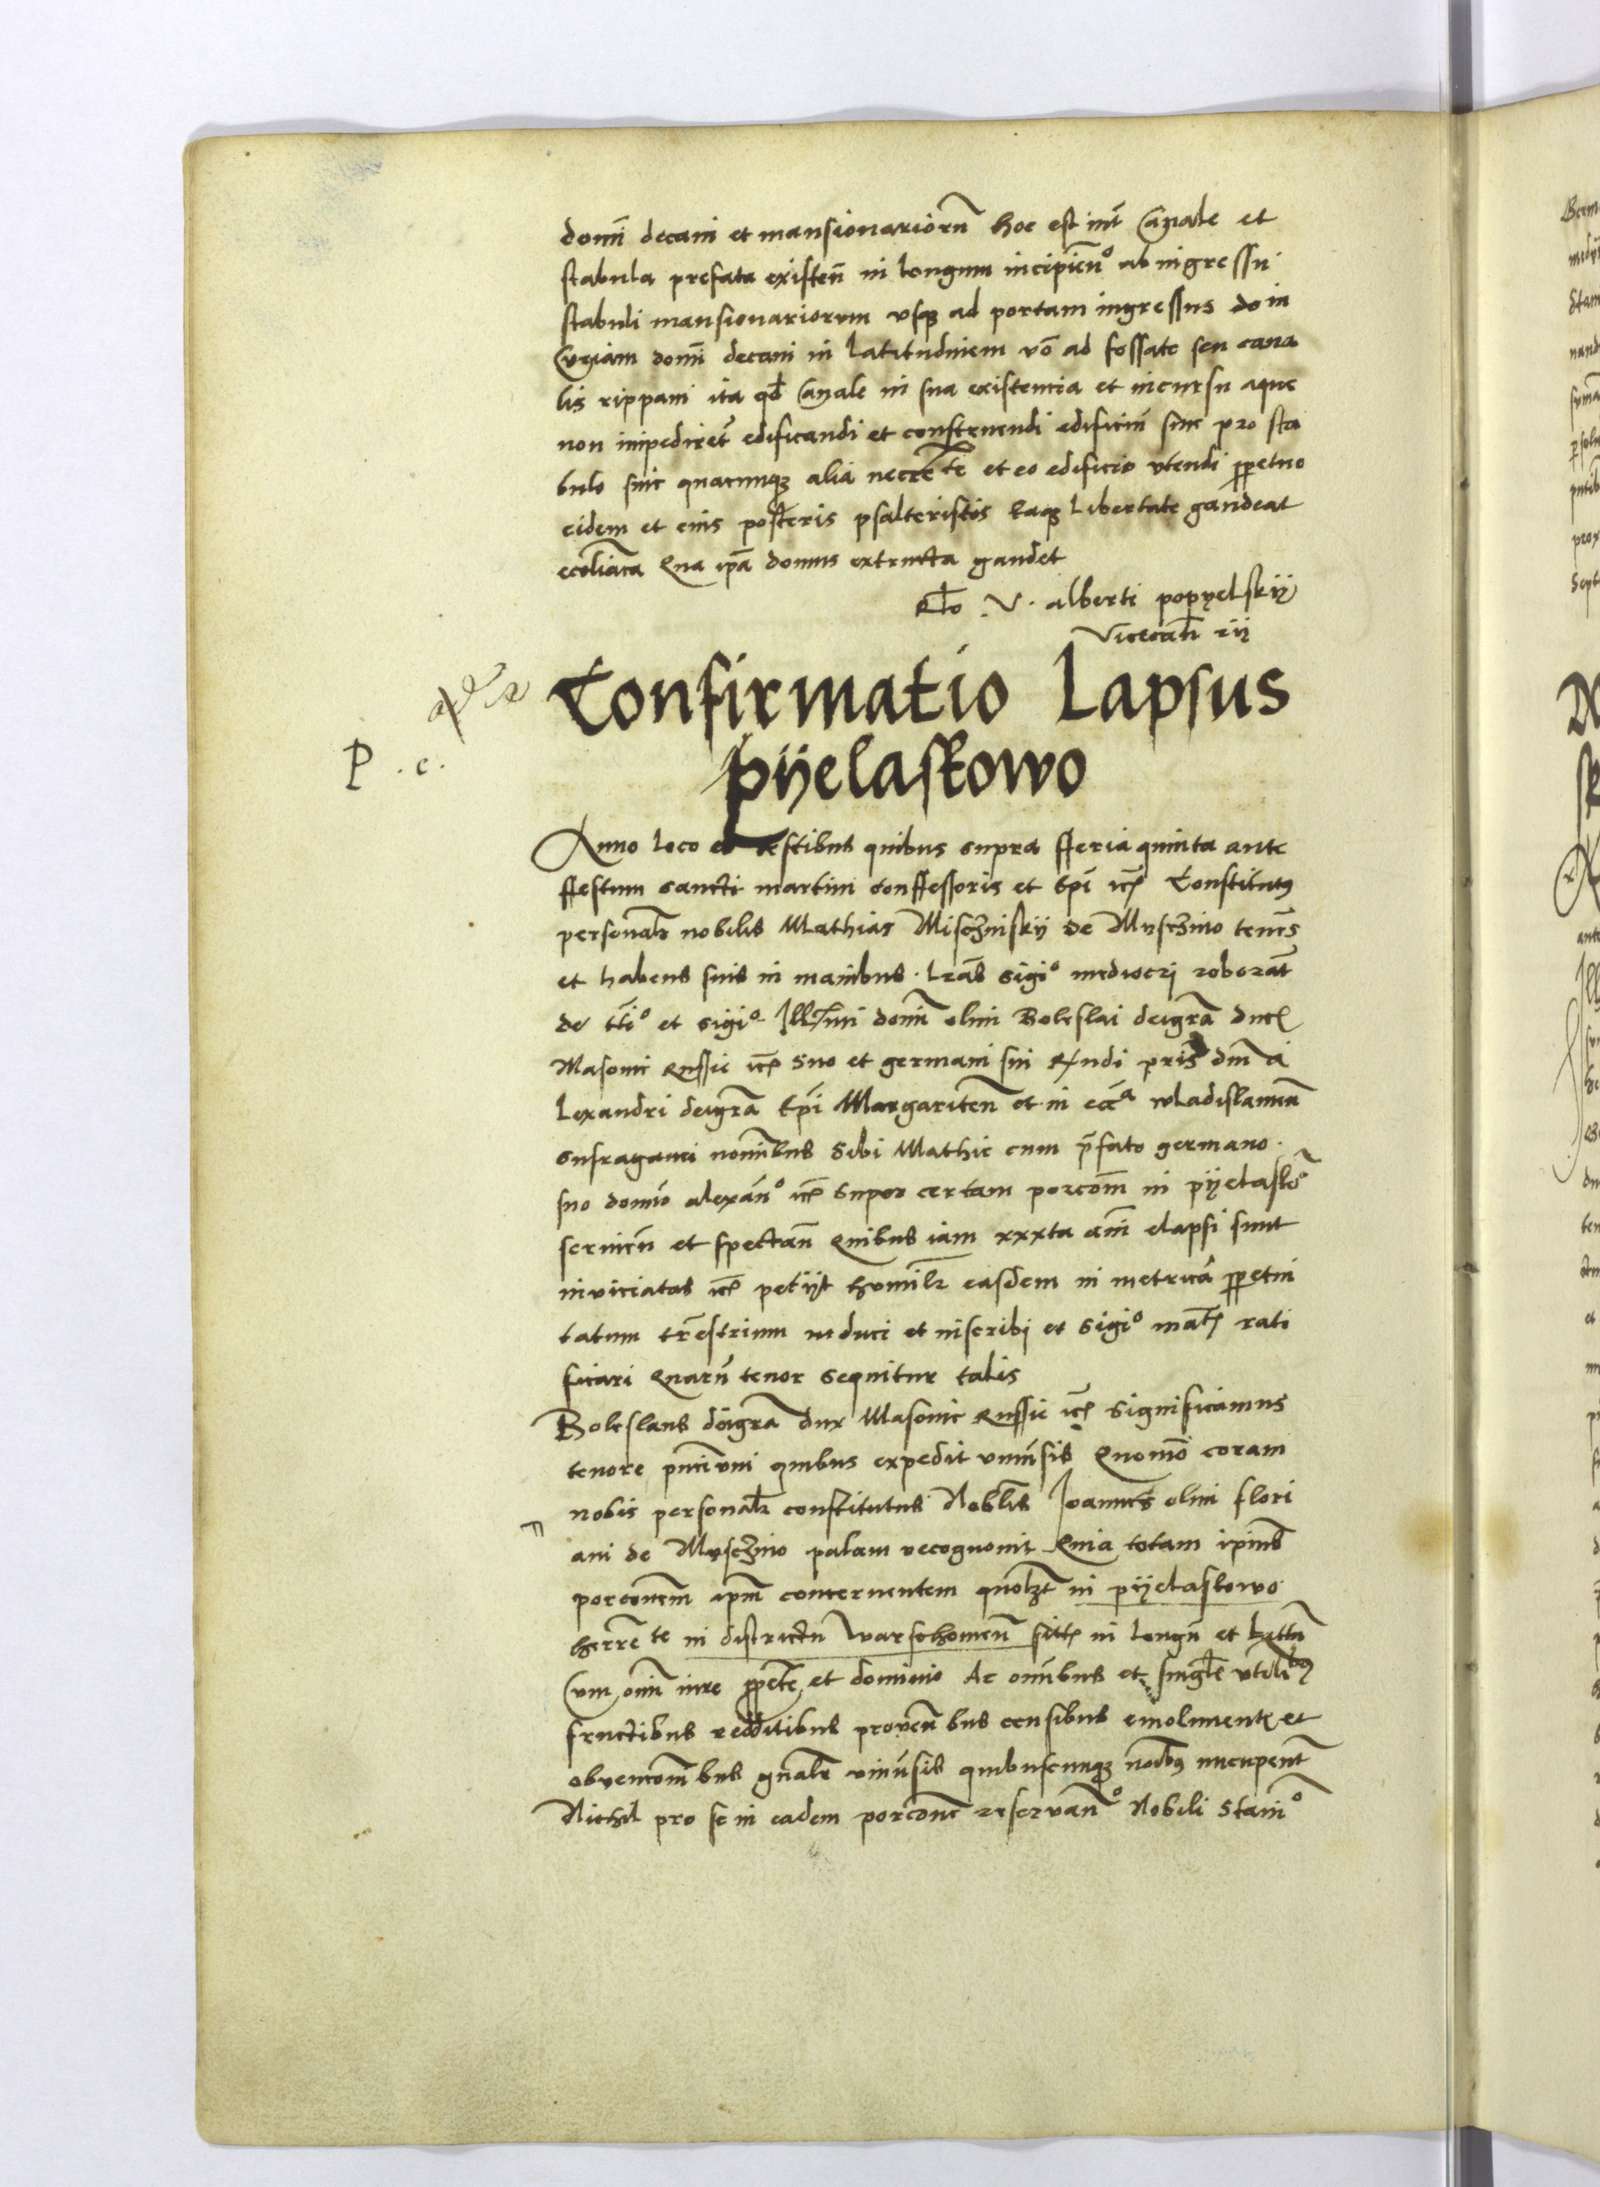 domi decani et mansionariorum hoc est int Canale et
stabula prefata existen in longum incipien ab ingressu
stabuli mansionariorum usque ad portam ingressus do in
Curiam domi decani in latitudinem vo ad fossate seu cana
lis rippam ita qd Canale in sua existencia et incursu aque
non impediret edificandi et construendi edificiu sive pro sta
bulo sive quacunque alia necre te et eo edificio utendi ppetuo
eidem et eius posteris psalteristis Eaque libertate gaudeat
Qua ipa domus extructa gaudet
Rlo V. alberti popyelskij
Vicecan rij
Confirmatio Lapsus
Pijelastowo
P . c .
Anno loco et testibus quibus supra fferia quinta ante
ffestum sancti martini conffessoris et Epi Constitutus
personalr nobilis Mathias Mischinskij de Myschino tenes
et habens suis in manibus lras sigio mediocri roborat
de tti et sigi Illmi domi olim Boleslai dei gra ducis
Masovie Russie suo et germani sui Rndi pris dni a
lexandri dei gra Epi Margariten et in ecca wladislavien
sufraganei nominibus Sibi Mathie cum prefato germano
suo domino alexan super certam porcom in pijelasto
servien et spectan Quibus iam xxxta anni elapsi sunt
inviciatas petijt humilr easdem in metrica ppetui
tatum trestrium induci et inscribi et sigio rati
ficari Quaru tenor sequitur talis
Boleslaus dei gra dux Masovie Russie significamus
tenore quibus expedit universis Quomo coram
nobis personalr constitutus Noblis Joannes olim flori
ani de Myschino palam recognovit Quia totam ipius
porcionem ipm concernentem in pijelastowo
herre te in districtu Warschovien in longu et latu
Cum omni iure et dominio Ac omnibus et utili
fructibus redditibus proven bus censibus emoliment et
obvencom bus gnalr universis quibuscunque
Nichil pro se in eadem porcione reservan Nobili Stani